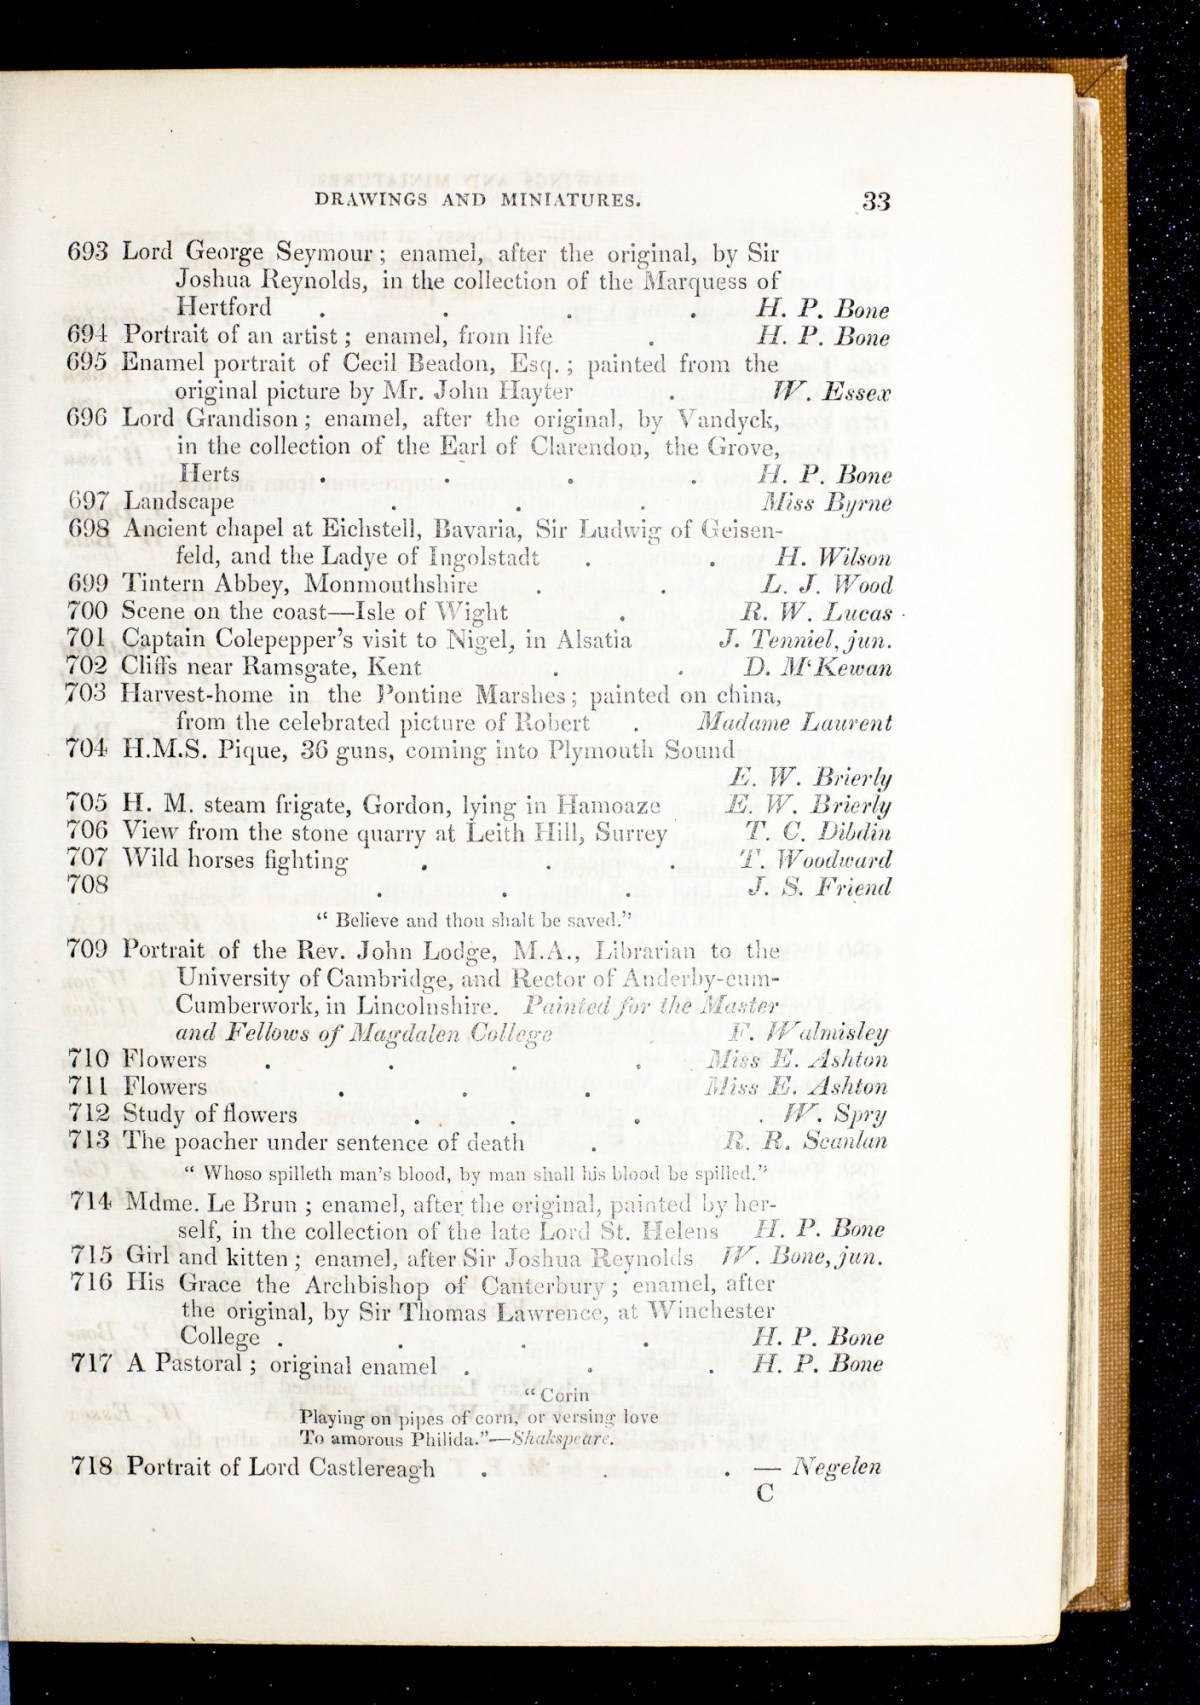 DRAWINGS AND MINIATURES. 33
693 Lord George Seymour ; enamel, after the original, by Sir
Joshua Reynolds, in the collection of the Marquess of
Hertford . . . . H. P. Bone
694 Portrait of an artist ; enamel, from life . H. P. Bone
695 Enamel portrait of Cecil Beadon, Esq. ; painted from the
original picture by Mr. John Hayter . W. Essex
696 Lord Grandison ; enamel, after the original, by Vandyck,
in the collection of the Earl of Clarendon, the Grove,
Herts . . . . H. P. Bone
697 Landscape . . . Miss Byrne
698 Ancient chapel at Eichstell, Bavaria, Sir Ludwig of Geisen-
feld, and the Ladye of Ingolstadt . . H. Wilson
699 Tintern Abbey, Monmouthshire . . L. J. Wood
700 Scene on the coast—Isle of Wight . R. W. Lucas
701 Captain Colepepper's visit to Nigel, in Alsatia J. Tenniel, jun.
702 Cliffs near Ramsgate, Kent . . D. M'Kewan
703 Harvest-home in the Pontine Marshes ; painted on china,
from the celebrated picture of Robert . Madame Laurent
704 H.M.S. Pique, 36 guns, coming into Plymouth Sound
E. W. Brierly
705 H. M. steam frigate, Gordon, lying in Hamoaze E. W. Brierly
706 View from the stone quarry at Leith Hill, Surrey T. C. Dibdin
707 Wild horses fighting . . . T. Woodward
708 . . . J. S. Friend
" Believe and thou shalt be saved."
709 Portrait of the Rev. John Lodge, M.A., Librarian to the
University of Cambridge, and Rector of Anderby-cum-
Cumberwork, in Lincolnshire. Painted for the Master
and Fellows of Magdalen College F. Walmisley
710 Flowers . . . . Miss E. Ashton
711 Flowers . . . Miss E. Ashton
712 Study of flowers . . . . W. Spry
713 The poacher under sentence of death . R. R. Scanlan
" Whoso spilleth man's blood, by man shall his blood be spilled."
714 Mdme. Le Brun ; enamel, after the original, painted by her-
self, in the collection of the late Lord St. Helens H. P. Bone
715 Girl and kitten ; enamel, after Sir Joshua Reynolds W. Bone, jun.
716 His Grace the Archbishop of Canterbury ; enamel, after
the original, by Sir Thomas Lawrence, at Winchester
College . . . . H. P. Bone
717 A Pastoral ; original enamel . . . H. P. Bone
" Corin
Playing on pipes of corn, or versing love
To amorous Philida."—Shakspeare.
718 Portrait of Lord Castlereagh . . . — Negelen
C